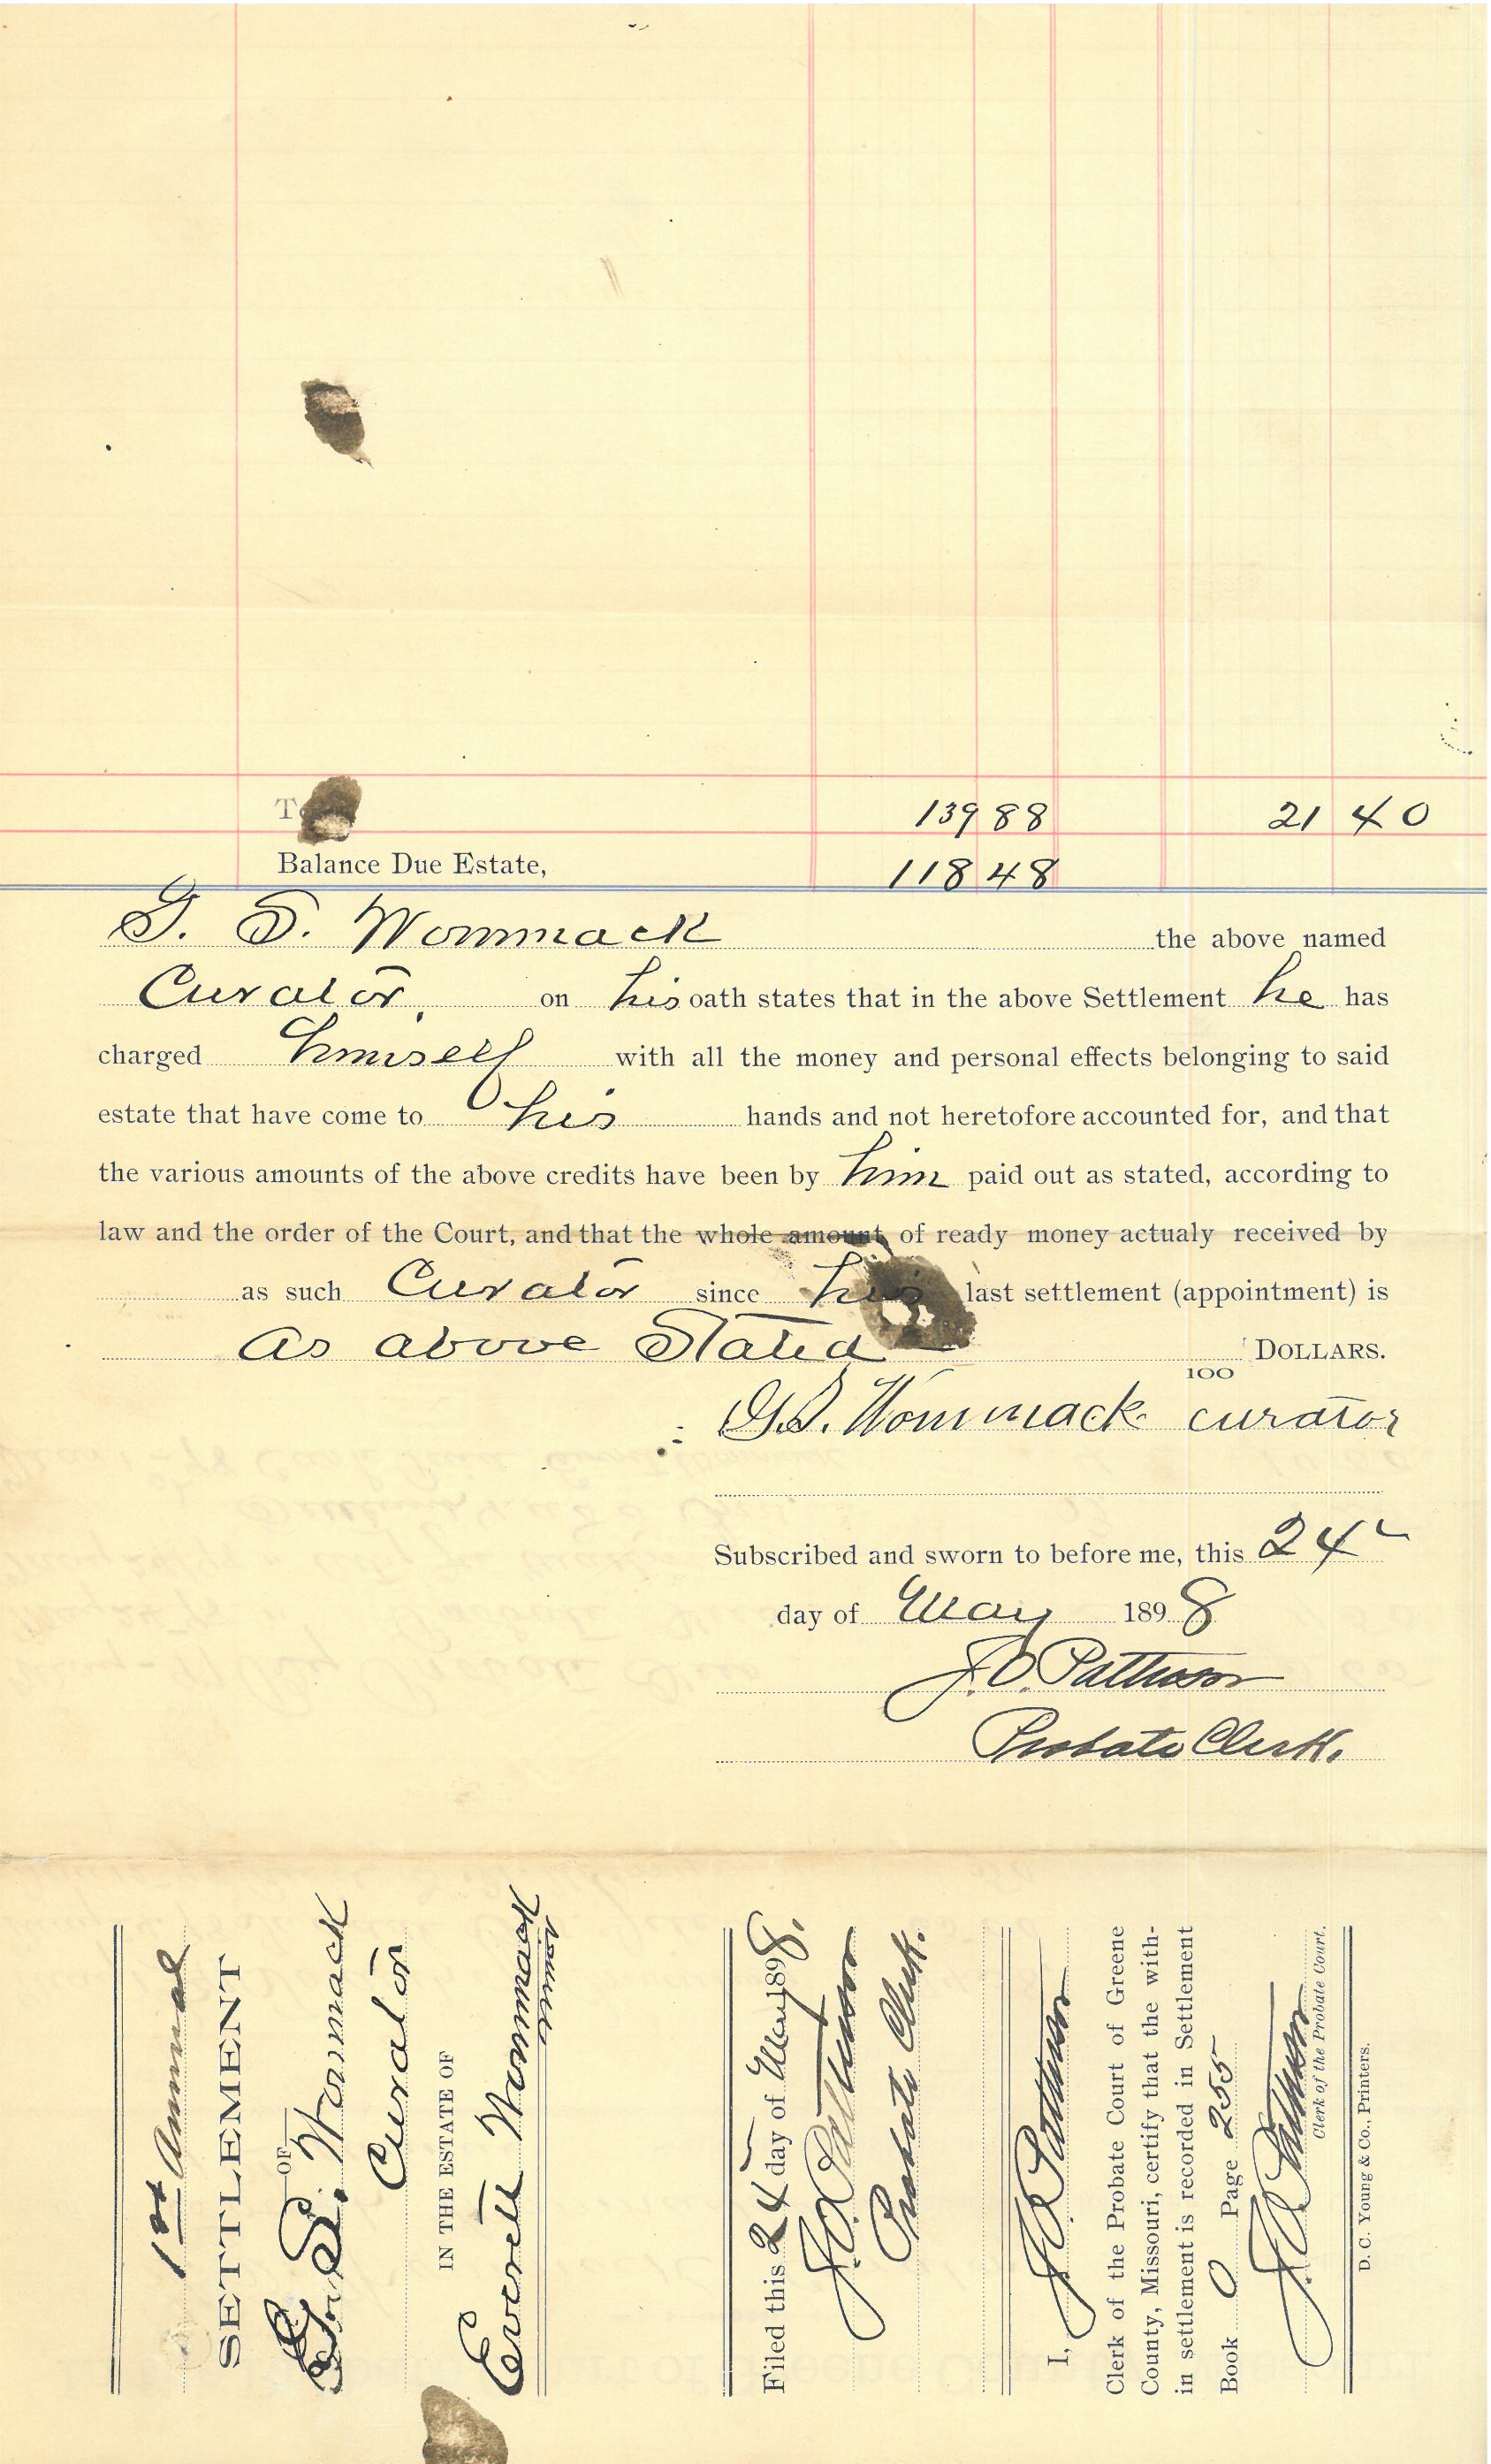 To 139 88 21 40
Balance Due Estate, 118 48
G. S. Wommack the above named
Curator, on his oath states that in the above Settlement he has
charged himself with all the money and personal effects belonging to said
estate that have come to his hands and not heretofore accounted for, and that
the various amounts of the above credits have been by him paid out as stated, according to
law and the order of the Court, and that the whole amount of ready money actualy received by
as such Curator since his last settlement (appointment) is
as above Stated 100 DOLLARS.
G.S. Wommack curator
Subscribed and sworn to before me, this 24
day of May 1898
J. O. Patterson
Probate Clerk.
1st Annual
SETTLEMENT
OF
G. S. Wommack
Curator
IN THE ESTATE OF
Everett Wommack
minor
Filed this 24 day of May 1898.
J. O. Patterson
Probate Clerk.
I, J. O. Patterson
Clerk of the Probate Court of Greene
County, Missouri, certify that the with-
in settlement is recorded in Settlement
Book O Page 255
J. O. Patterson
Clerk of the Probate Court.
D. C. Young & Co., Printers.